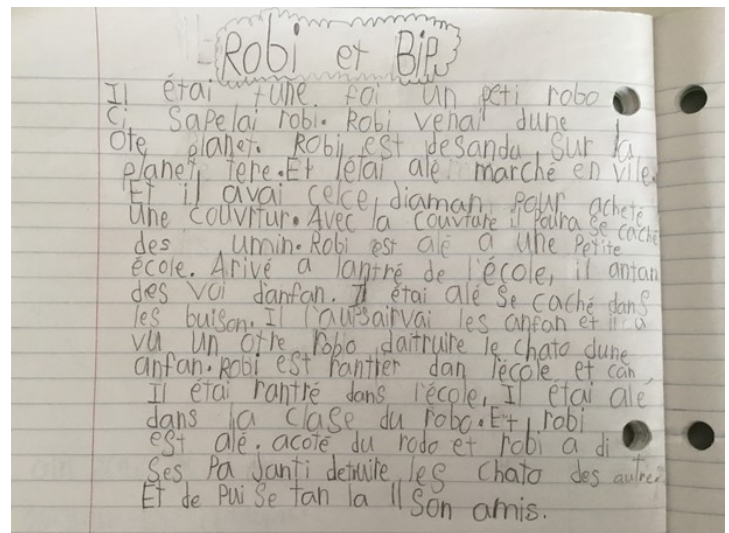 Robi et Bip
Il étai tune foi un peti robo
Ci Sapelai robi. Robi venai dune
Ote planet. Robi est desandu Sur la
planet tere. Et létai alé marché en vile.
Et il avai celce diaman pour acheté
une couvrtur. Avec la couvture il poura se caché
des umin. Robi est alé a une petite
école. Arivé a lantré de l'école, il antan
des voi danfan. Il étai alé se caché dans
les buison. Il l'aupsairvai les anfan et il a
vu un otre robo daitruire le chato dune
anfan. Robi est rantrer dan l'école et can
Il étai rantré dans l'école, Il étai alé
dans la clase du robo. Et robi
est alé. acoté du rodo et robi a di
Ses Pa Janti detruire les chato des autres
Et de pui se tan la Il Son amis.